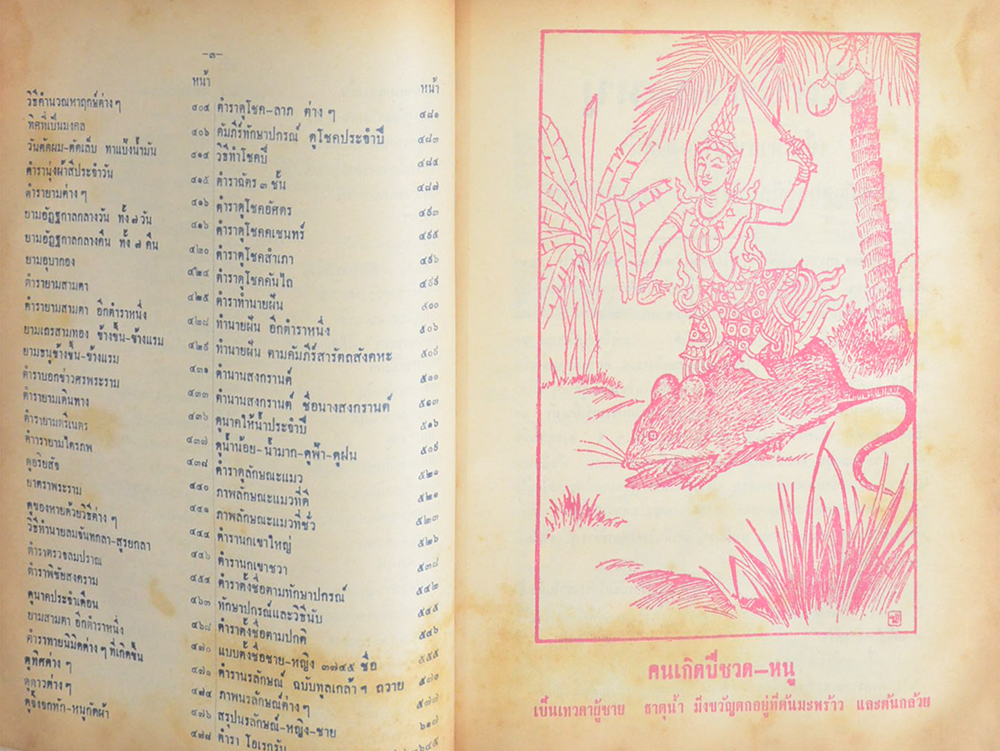 -๓-
หน้า
วิธีคำนวณหาฤกษ์ต่างๆ ๔๐๔
ทิศที่เป็นมงคล ๔๐๖
วันตัดผม-ตัดเล็บ ทาแป้งน้ำมัน ๔๑๔
ตำรานุ่งผ้าสีประจำวัน ๔๑๕
ตำรายามต่าง ๆ ๔๑๖
ยามอัฏฐกาลกลางวัน ทั้ง ๗ วัน ๔๑๖
ยามอัฏฐกาลกลางคืน ทั้ง ๗ คืน ๔๒๐
ยามอุบากอง ๔๒๔
ตำรายามสามตา ๔๒๕
ตำรายามสามตา อีกตำราหนึ่ง ๔๒๘
ยามเถรสามทอง ข้างขึ้น-ข้างแรม ๔๒๙
ยามธนูข้างขึ้น-ข้างแรม ๔๓๑
ตำราบอกข่าวศรพระราม ๔๓๓
ตำรายามเดินทาง ๔๓๖
ตำรายามตรีเนตร ๔๓๗
ตำรายามไตรภพ ๔๓๘
ดูอริยสัจ ๔๔๐
ยาตราพระราม ๔๔๑
ดูของหายด้วยวิธีต่าง ๆ ๔๔๔
วิธีทำนายลมจันทกลา-สุรยกลา ๔๔๖
ตำราตรวจลมปราณ ๔๕๔
ตำราพิชัยสงคราม ๔๖๓
ดูนาคประจำเดือน ๔๖๘
ยามสามตา อีกตำราหนึ่ง ๔๗๐
ตำราทายนิมิตต่าง ๆ ที่เกิดขึ้น ๔๗๑
ดูทิศต่าง ๆ ๔๗๔
ดูดาวต่าง ๆ ๔๗๖
ดูจิ้งจกทัก-หนูกัดผ้า ๔๗๘
หน้า
ตำราดูโชค-ลาภ ต่าง ๆ ๔๘๑
คัมภีร์ทักษาปกรณ์ ดูโชคประจำปี ๔๘๓
วิธีทำโชคปี ๔๘๕
ตำราฉัตร ๓ ชั้น ๔๘๗
ตำราดูโชคอัศดร ๔๙๓
ตำราดูโชคคเชนทร์ ๔๙๕
ตำราดูโชคสำเภา ๔๙๖
ตำราดูโชคคันไถ ๔๙๙
ตำราทำนายฝัน ๕๐๐
ทำนายฝัน อีกตำราหนึ่ง ๕๐๖
ทำนายฝัน ตามคัมภีร์สารัตถสังคหะ ๕๐๙
ตำนานสงกรานต์ ๕๑๑
ตำนานสงกรานต์ ชื่อนางสงกรานต์ ๕๑๓
ดูนาคให้น้ำประจำปี ๕๑๖
ดูน้ำน้อย-น้ำมาก-ดูฟ้า-ดูฝน ๕๑๙
ตำราดูลักษณะแมว ๕๒๑
ภาพลักษณะแมวที่ดี ๕๒๑
ภาพลักษณะแมวที่ชั่ว ๕๒๓
ตำรานกเขาใหญ่ ๕๒๖
ตำรานกเขาชวา ๕๓๘
ตำราตั้งชื่อตามทักษาปกรณ์ ๕๔๒
ทักษาปกรณ์และวิธีนับ ๕๔๕
ตำราตั้งชื่อตามปกติ ๕๔๖
แบบตั้งชื่อชาย-หญิง ๓๗๔๕ ชื่อ ๕๕๕
ตำรานรลักษณ์ ฉบับทูลเกล้า ฯ ถวาย ๕๗๐
ภาพนรลักษณ์ต่าง ๆ ๕๗๑
สรุปนรลักษณ์-หญิง-ชาย ๖๑๗
ตำรา โอเรกรัม ๖๔๕
คนเกิดปีชวด-หนู
เป็นเทวดาผู้ชาย ธาตุน้ำ มิ่งขวัญตกอยู่ที่ต้นมะพร้าว และต้นกล้วย